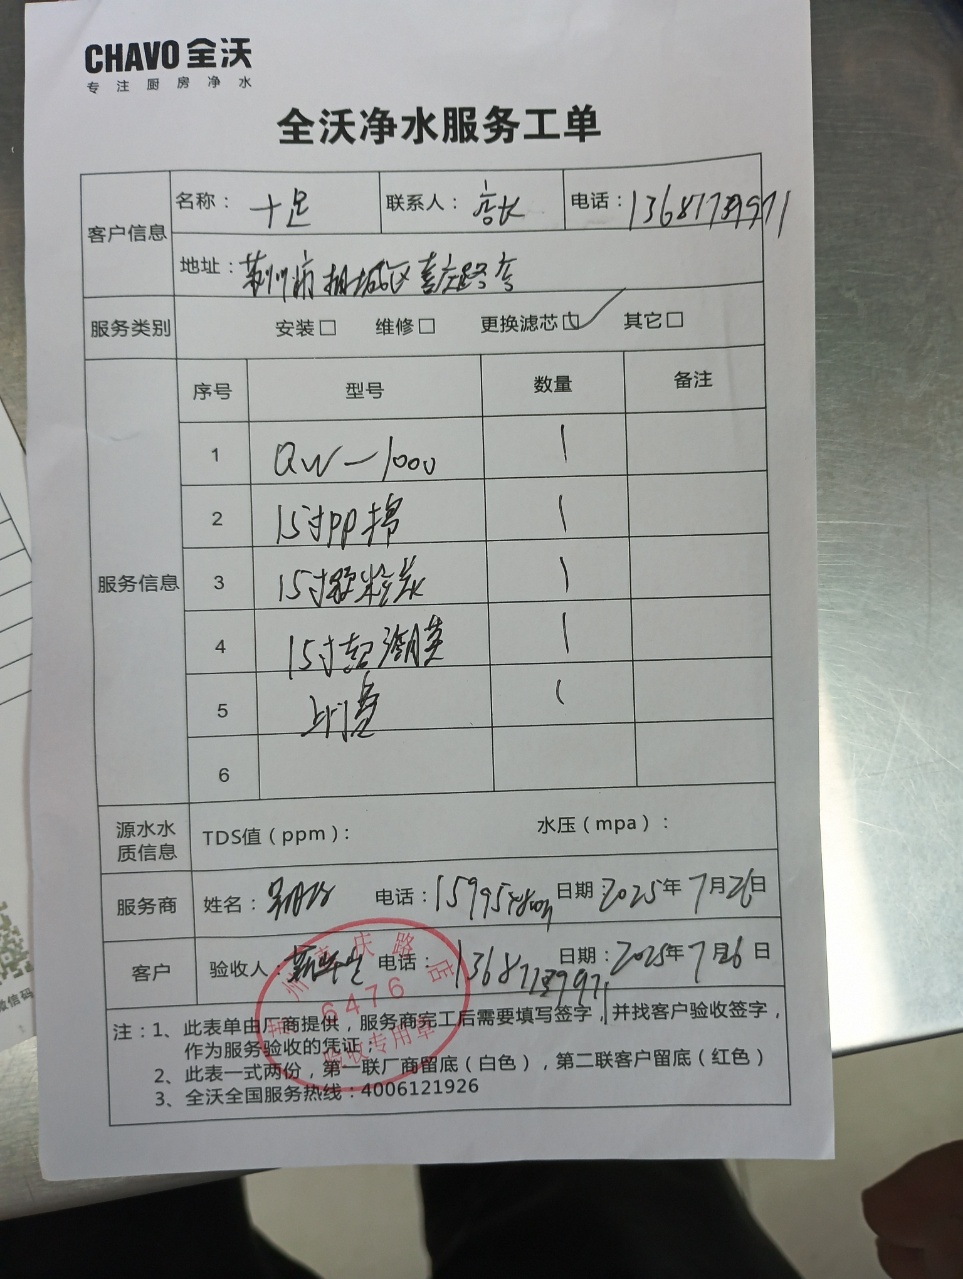 CHAVO 全沃
专注厨房净水
全沃净水服务工单
客户信息 名称: 十足 联系人: 店长 电话:
地址:
服务类别 安装□ 维修□ 更换滤芯☑ 其它□
服务信息 序号 型号 数量 备注
1 QW-1000 1
2 15寸PP棉 1
3 15寸颗粒炭 1
4 15寸超滤膜 1
5 上门费 1
6
源水水质信息 TDS值(ppm): 水压(mpa):
服务商 姓名: 电话: 日期: 2025年7月26日
客户 验收人: 电话: 日期: 2025年7月26日
庆路店
6476
验收专用章
注:1、此表单由厂商提供,服务商完工后需要填写签字,并找客户验收签字,
作为服务验收的凭证;
2、此表一式两份,第一联厂商留底(白色),第二联客户留底(红色)
3、全沃全国服务热线:4006121926
微信码